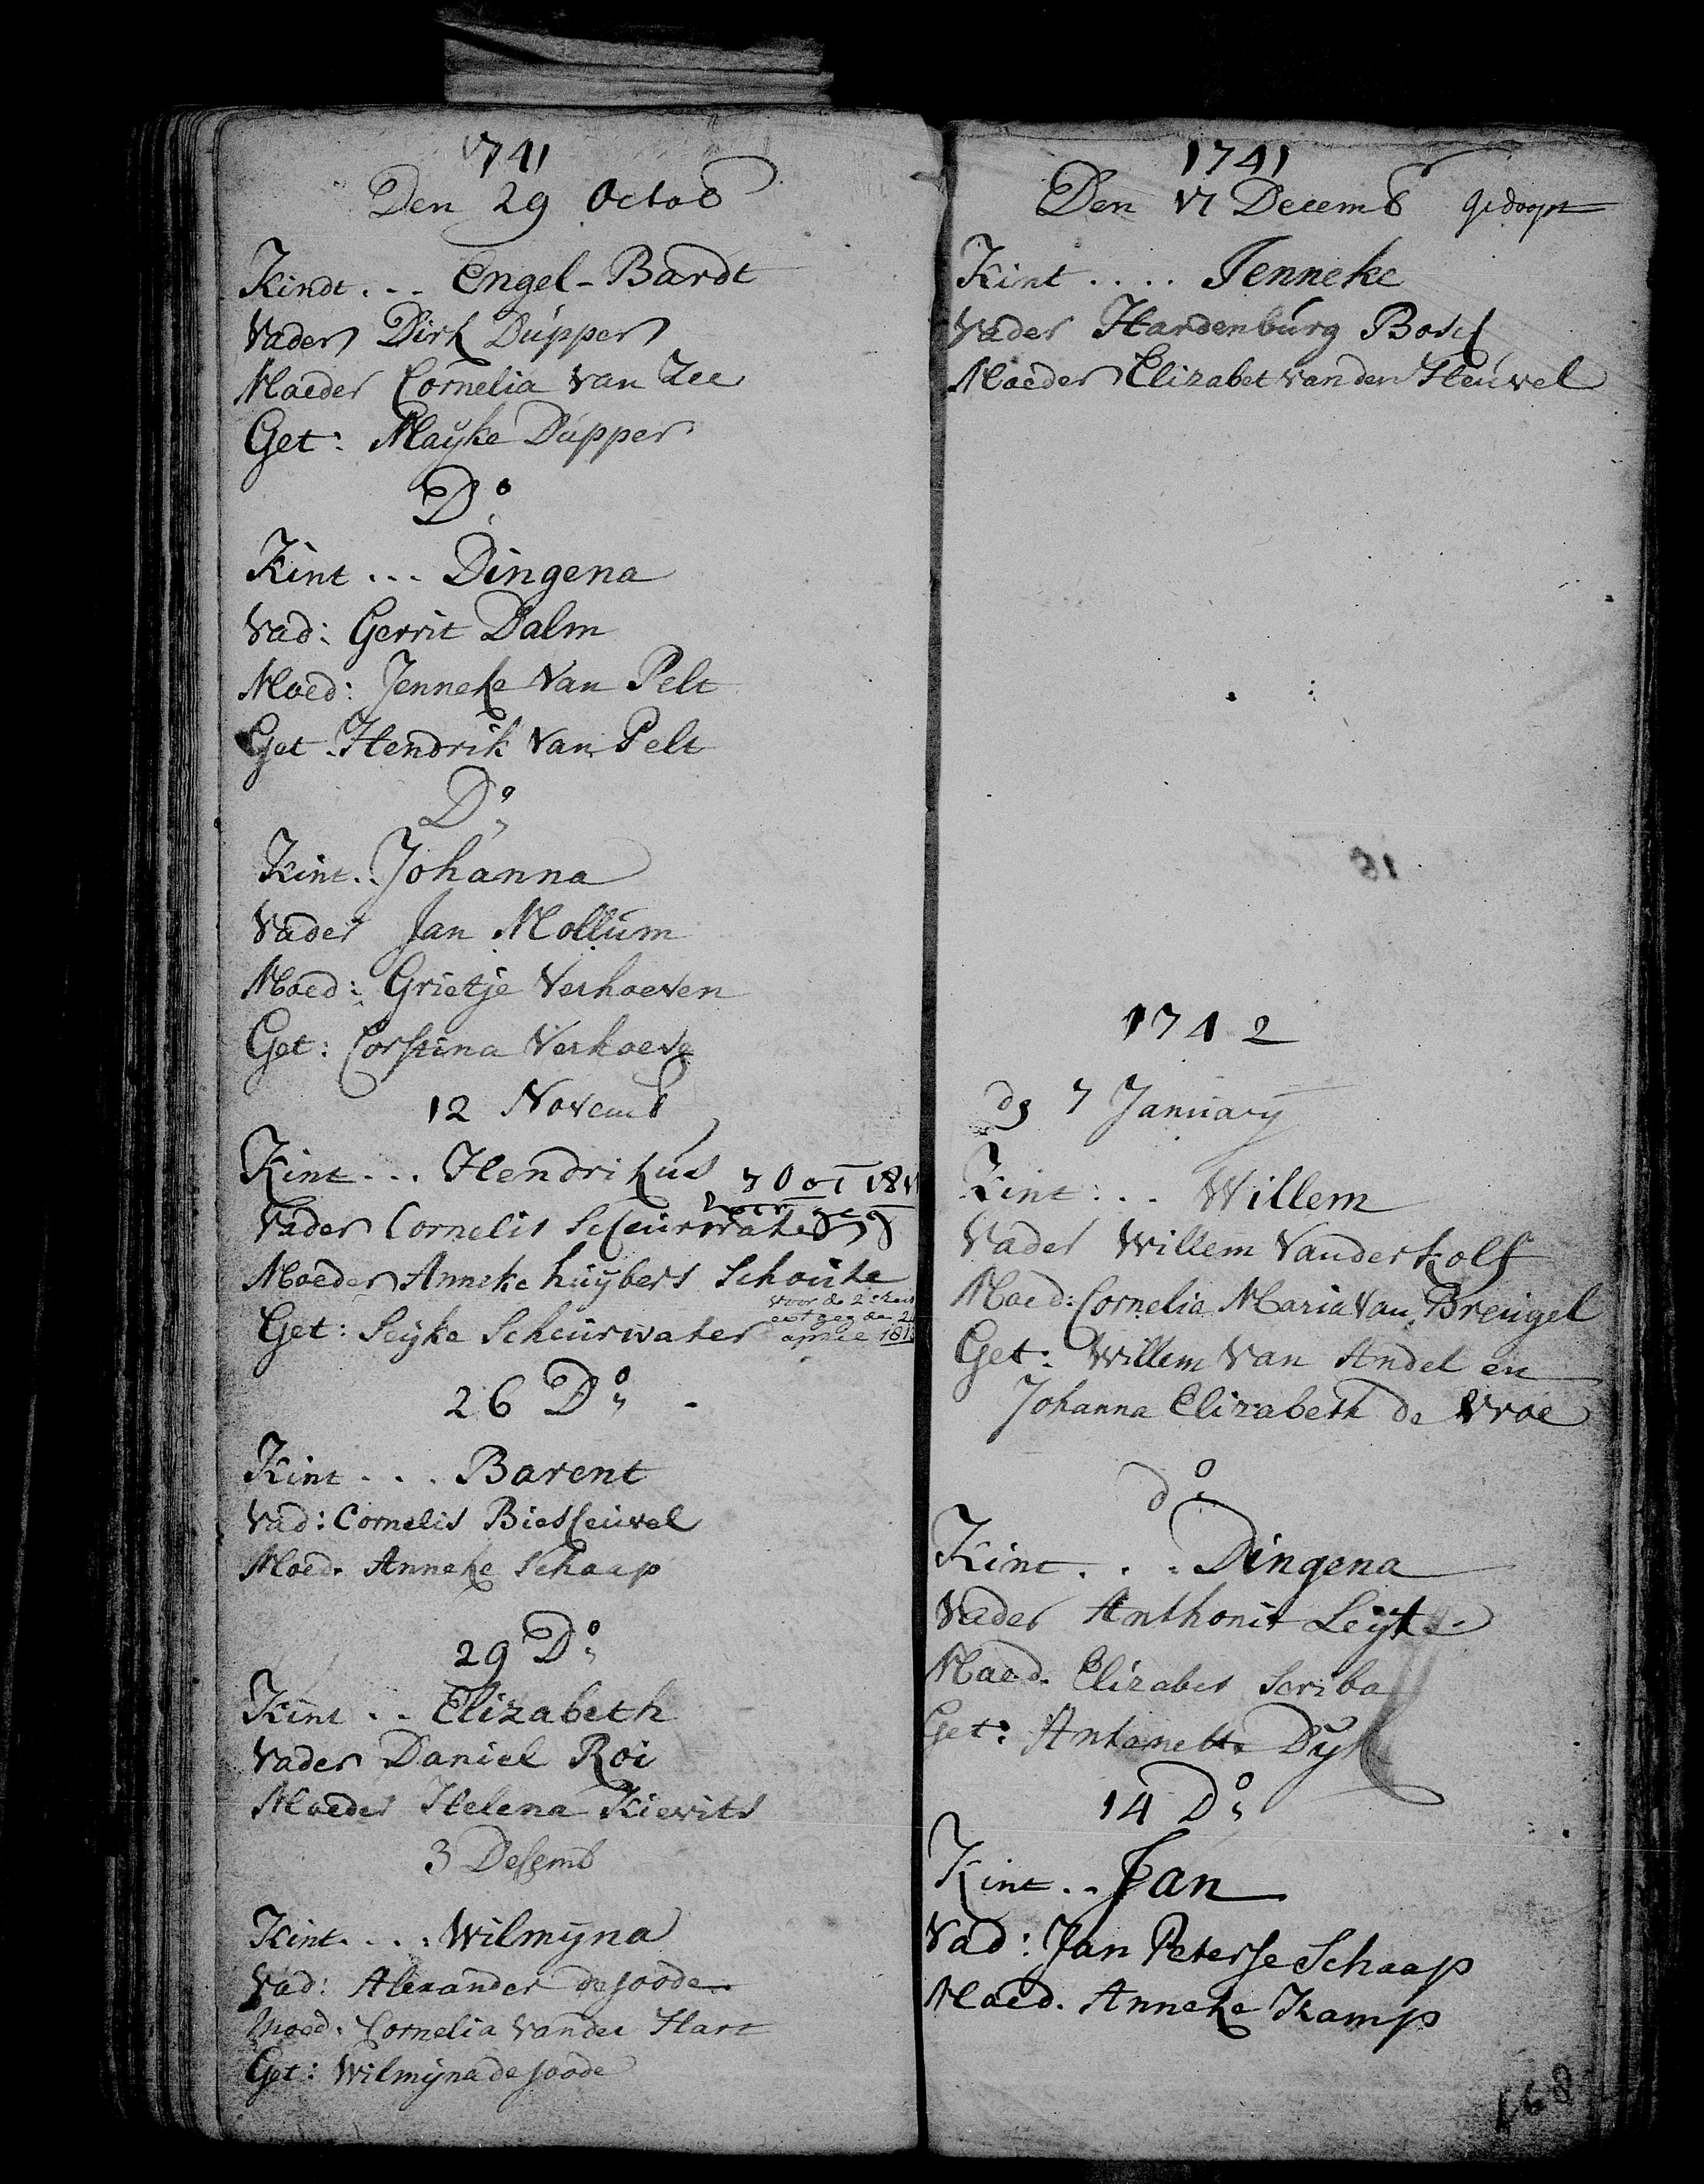 1741
Den 29 Octob
Kindt... Engel-Bardt
Vader Dirk Dupper
Moeder Cornelia van Zee
Get: Mayke Dupper
Do
Kint... Dingena
Vad: Gerrit Dalm
Moed: Jenneke Van Pelt
Get. Hendrik Van Pelt
Do
Kint.. Johanna
Vader Jan Mollum
Moed: Grietje Verhoeven
Get: Corstina Verhoeve
12 Novemb
Kint... Hendrikus
Vader Cornelis Scheurwater
Moeder Anneke huybers Schoute
voor de 2
Get: Seyke Scheurwater
26 Do
Kint.... Barent
Vad: Cornelis Biesheuvel
Moed. Anneke Schaap
29 Do
Kint.. Elizabeth
Vader Daniel Roi
Moeder Helena Kievits
3 Desemb
Kint.... Wilmyna
Vad: Alexander de joode
Moed: Cornelia vander Hart
Get: Wilmyna de joode
1741
Den 17 Decemb gedoopt
Kint.... Jenneke
Vader Hardenburg Bosch
Moeder Elizabet van den Heuvel
1742
7 January
Kint... Willem
Vader Willem Vanderkolf
Moed: Cornelia Maria Van Breugel
Get: Willem Van Andel en
Johanna Elizabeth de Vroe
do
Kint... Dingena
Vader Anthonis
Moed. Elizabet Scriba
Get: Antonette Dyk
14 Do
Kint.. Jan
Vad: Jan Peterse Schaap
Moed. Anneke Kamp
168